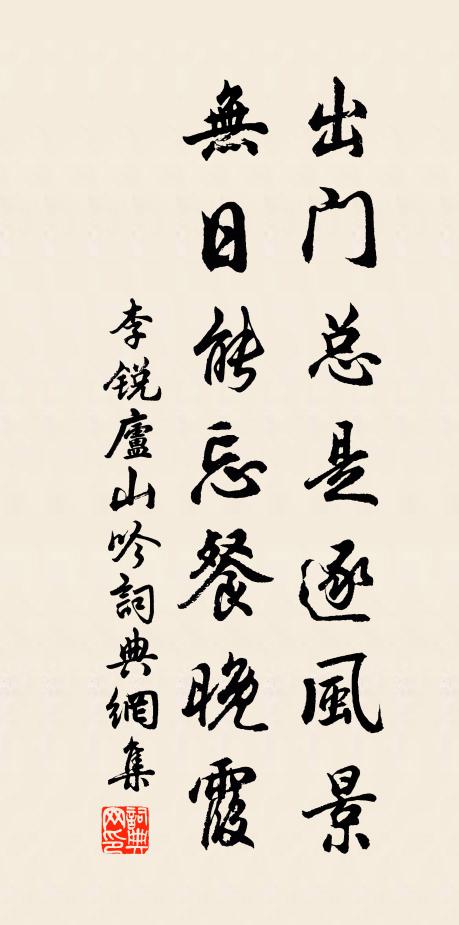 出门总是逐風景
無日能忘餐晚霞
李锐廬山吟詞典網集
詞典网印